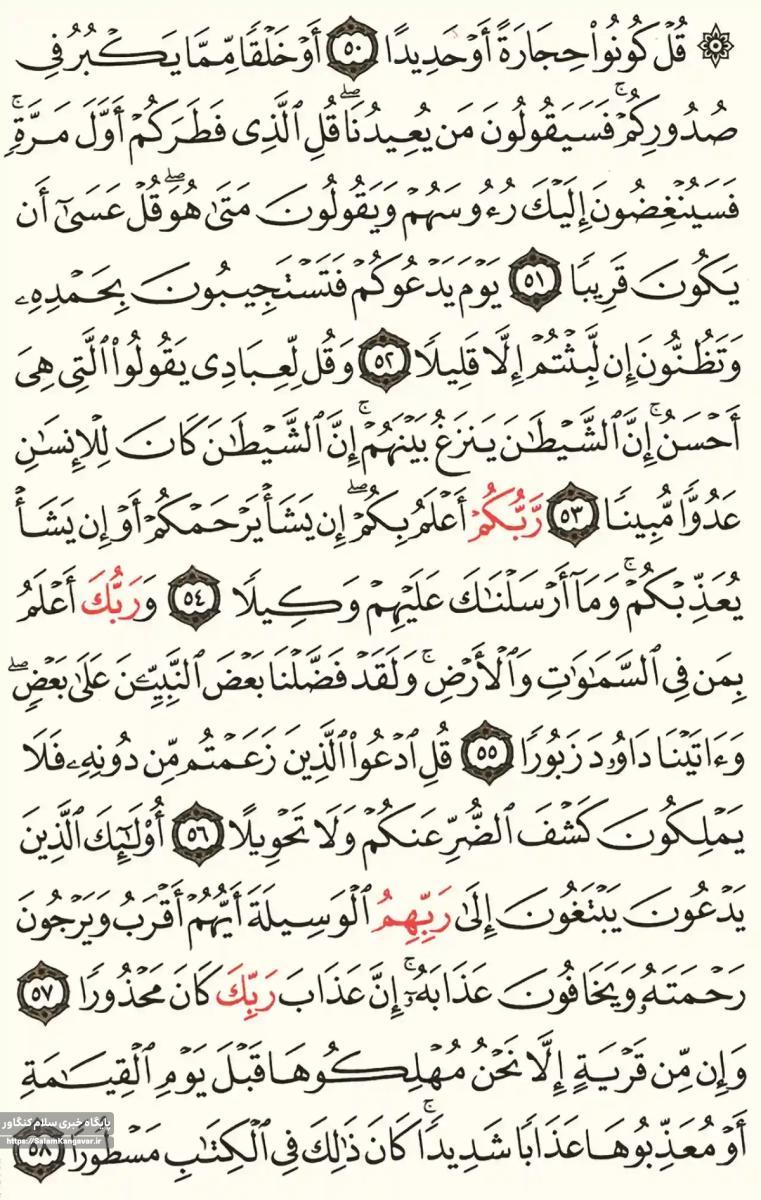 ۞ قُلْ كُونُوا۟ حِجَارَةً أَوْ حَدِيدًا ٥٠ أَوْ خَلْقًا مِّمَّا يَكْبُرُ فِى
صُدُورِكُمْ ۚ فَسَيَقُولُونَ مَن يُعِيدُنَا ۖ قُلِ ٱلَّذِى فَطَرَكُمْ أَوَّلَ مَرَّةٍ ۚ
فَسَيُنْغِضُونَ إِلَيْكَ رُءُوسَهُمْ وَيَقُولُونَ مَتَىٰ هُوَ ۖ قُلْ عَسَىٰٓ أَن
يَكُونَ قَرِيبًا ٥١ يَوْمَ يَدْعُوكُمْ فَتَسْتَجِيبُونَ بِحَمْدِهِۦ
وَتَظُنُّونَ إِن لَّبِثْتُمْ إِلَّا قَلِيلًا ٥٢ وَقُل لِّعِبَادِى يَقُولُوا۟ ٱلَّتِى هِىَ
أَحْسَنُ ۚ إِنَّ ٱلشَّيْطَٰنَ يَنزَغُ بَيْنَهُمْ ۚ إِنَّ ٱلشَّيْطَٰنَ كَانَ لِلْإِنسَٰنِ
عَدُوًّا مُّبِينًا ٥٣ رَّبُّكُمْ أَعْلَمُ بِكُمْ ۖ إِن يَشَأْ يَرْحَمْكُمْ أَوْ إِن يَشَأْ
يُعَذِّبْكُمْ ۚ وَمَآ أَرْسَلْنَٰكَ عَلَيْهِمْ وَكِيلًا ٥٤ وَرَبُّكَ أَعْلَمُ
بِمَن فِى ٱلسَّمَٰوَٰتِ وَٱلْأَرْضِ ۗ وَلَقَدْ فَضَّلْنَا بَعْضَ ٱلنَّبِيِّۦنَ عَلَىٰ بَعْضٍ ۖ
وَءَاتَيْنَا دَاوُۥدَ زَبُورًا ٥٥ قُلِ ٱدْعُوا۟ ٱلَّذِينَ زَعَمْتُم مِّن دُونِهِۦ فَلَا
يَمْلِكُونَ كَشْفَ ٱلضُّرِّ عَنكُمْ وَلَا تَحْوِيلًا ٥٦ أُو۟لَٰٓئِكَ ٱلَّذِينَ
يَدْعُونَ يَبْتَغُونَ إِلَىٰ رَبِّهِمُ ٱلْوَسِيلَةَ أَيُّهُمْ أَقْرَبُ وَيَرْجُونَ
رَحْمَتَهُۥ وَيَخَافُونَ عَذَابَهُۥٓ ۚ إِنَّ عَذَابَ رَبِّكَ كَانَ مَحْذُورًا ٥٧
وَإِن مِّن قَرْيَةٍ إِلَّا نَحْنُ مُهْلِكُوهَا قَبْلَ يَوْمِ ٱلْقِيَٰمَةِ
أَوْ مُعَذِّبُوهَا عَذَابًا شَدِيدًا ۚ كَانَ ذَٰلِكَ فِى ٱلْكِتَٰبِ مَسْطُورًا ٥٨
پایگاه خبری سلام کنگاور
https://SalamKangavar.ir